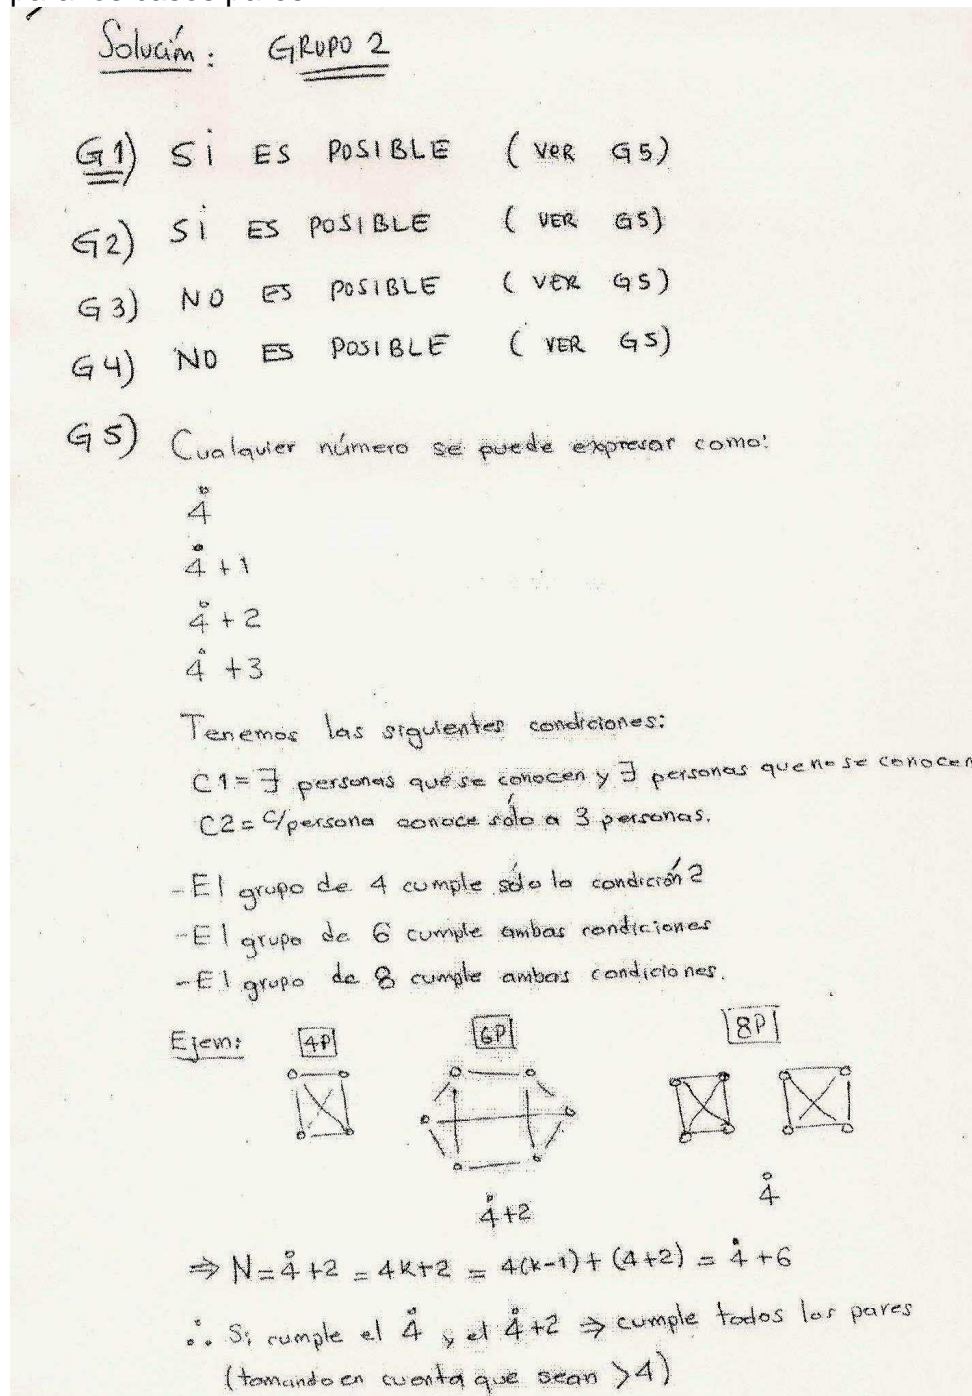 Solución: GRUPO 2
G1) SI ES POSIBLE (VER G5)
G2) SI ES POSIBLE (VER G5)
G3) NO ES POSIBLE (VER G5)
G4) NO ES POSIBLE (VER G5)
G5) Cualquier número se puede expresar como:
4̊
4̊ + 1
4̊ + 2
4̊ + 3
Tenemos las siguientes condiciones:
C1 = ∃ personas que se conocen y ∃ personas que no se conocen
C2 = c/persona conoce sólo a 3 personas.
- El grupo de 4 cumple sólo la condición 2
- El grupo de 6 cumple ambas condiciones
- El grupo de 8 cumple ambas condiciones.
Ejem: 4P 6P 8P
4̊+2 4̊
⇒ N = 4̊ + 2 = 4k+2 = 4(k-1) + (4+2) = 4̊ + 6
∴ Si cumple el 4̊ y el 4̊+2 ⇒ cumple todos los pares
(tomando en cuenta que sean >4)